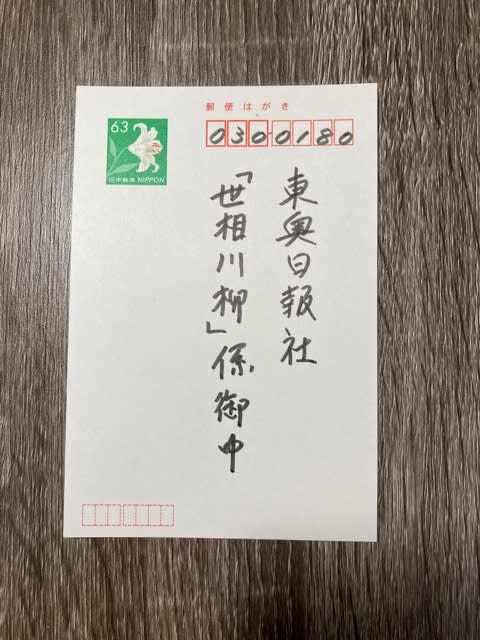 63
日本郵便 NIPPON
郵便はがき
030-0180
東奥日報社
「世相川柳」係御中